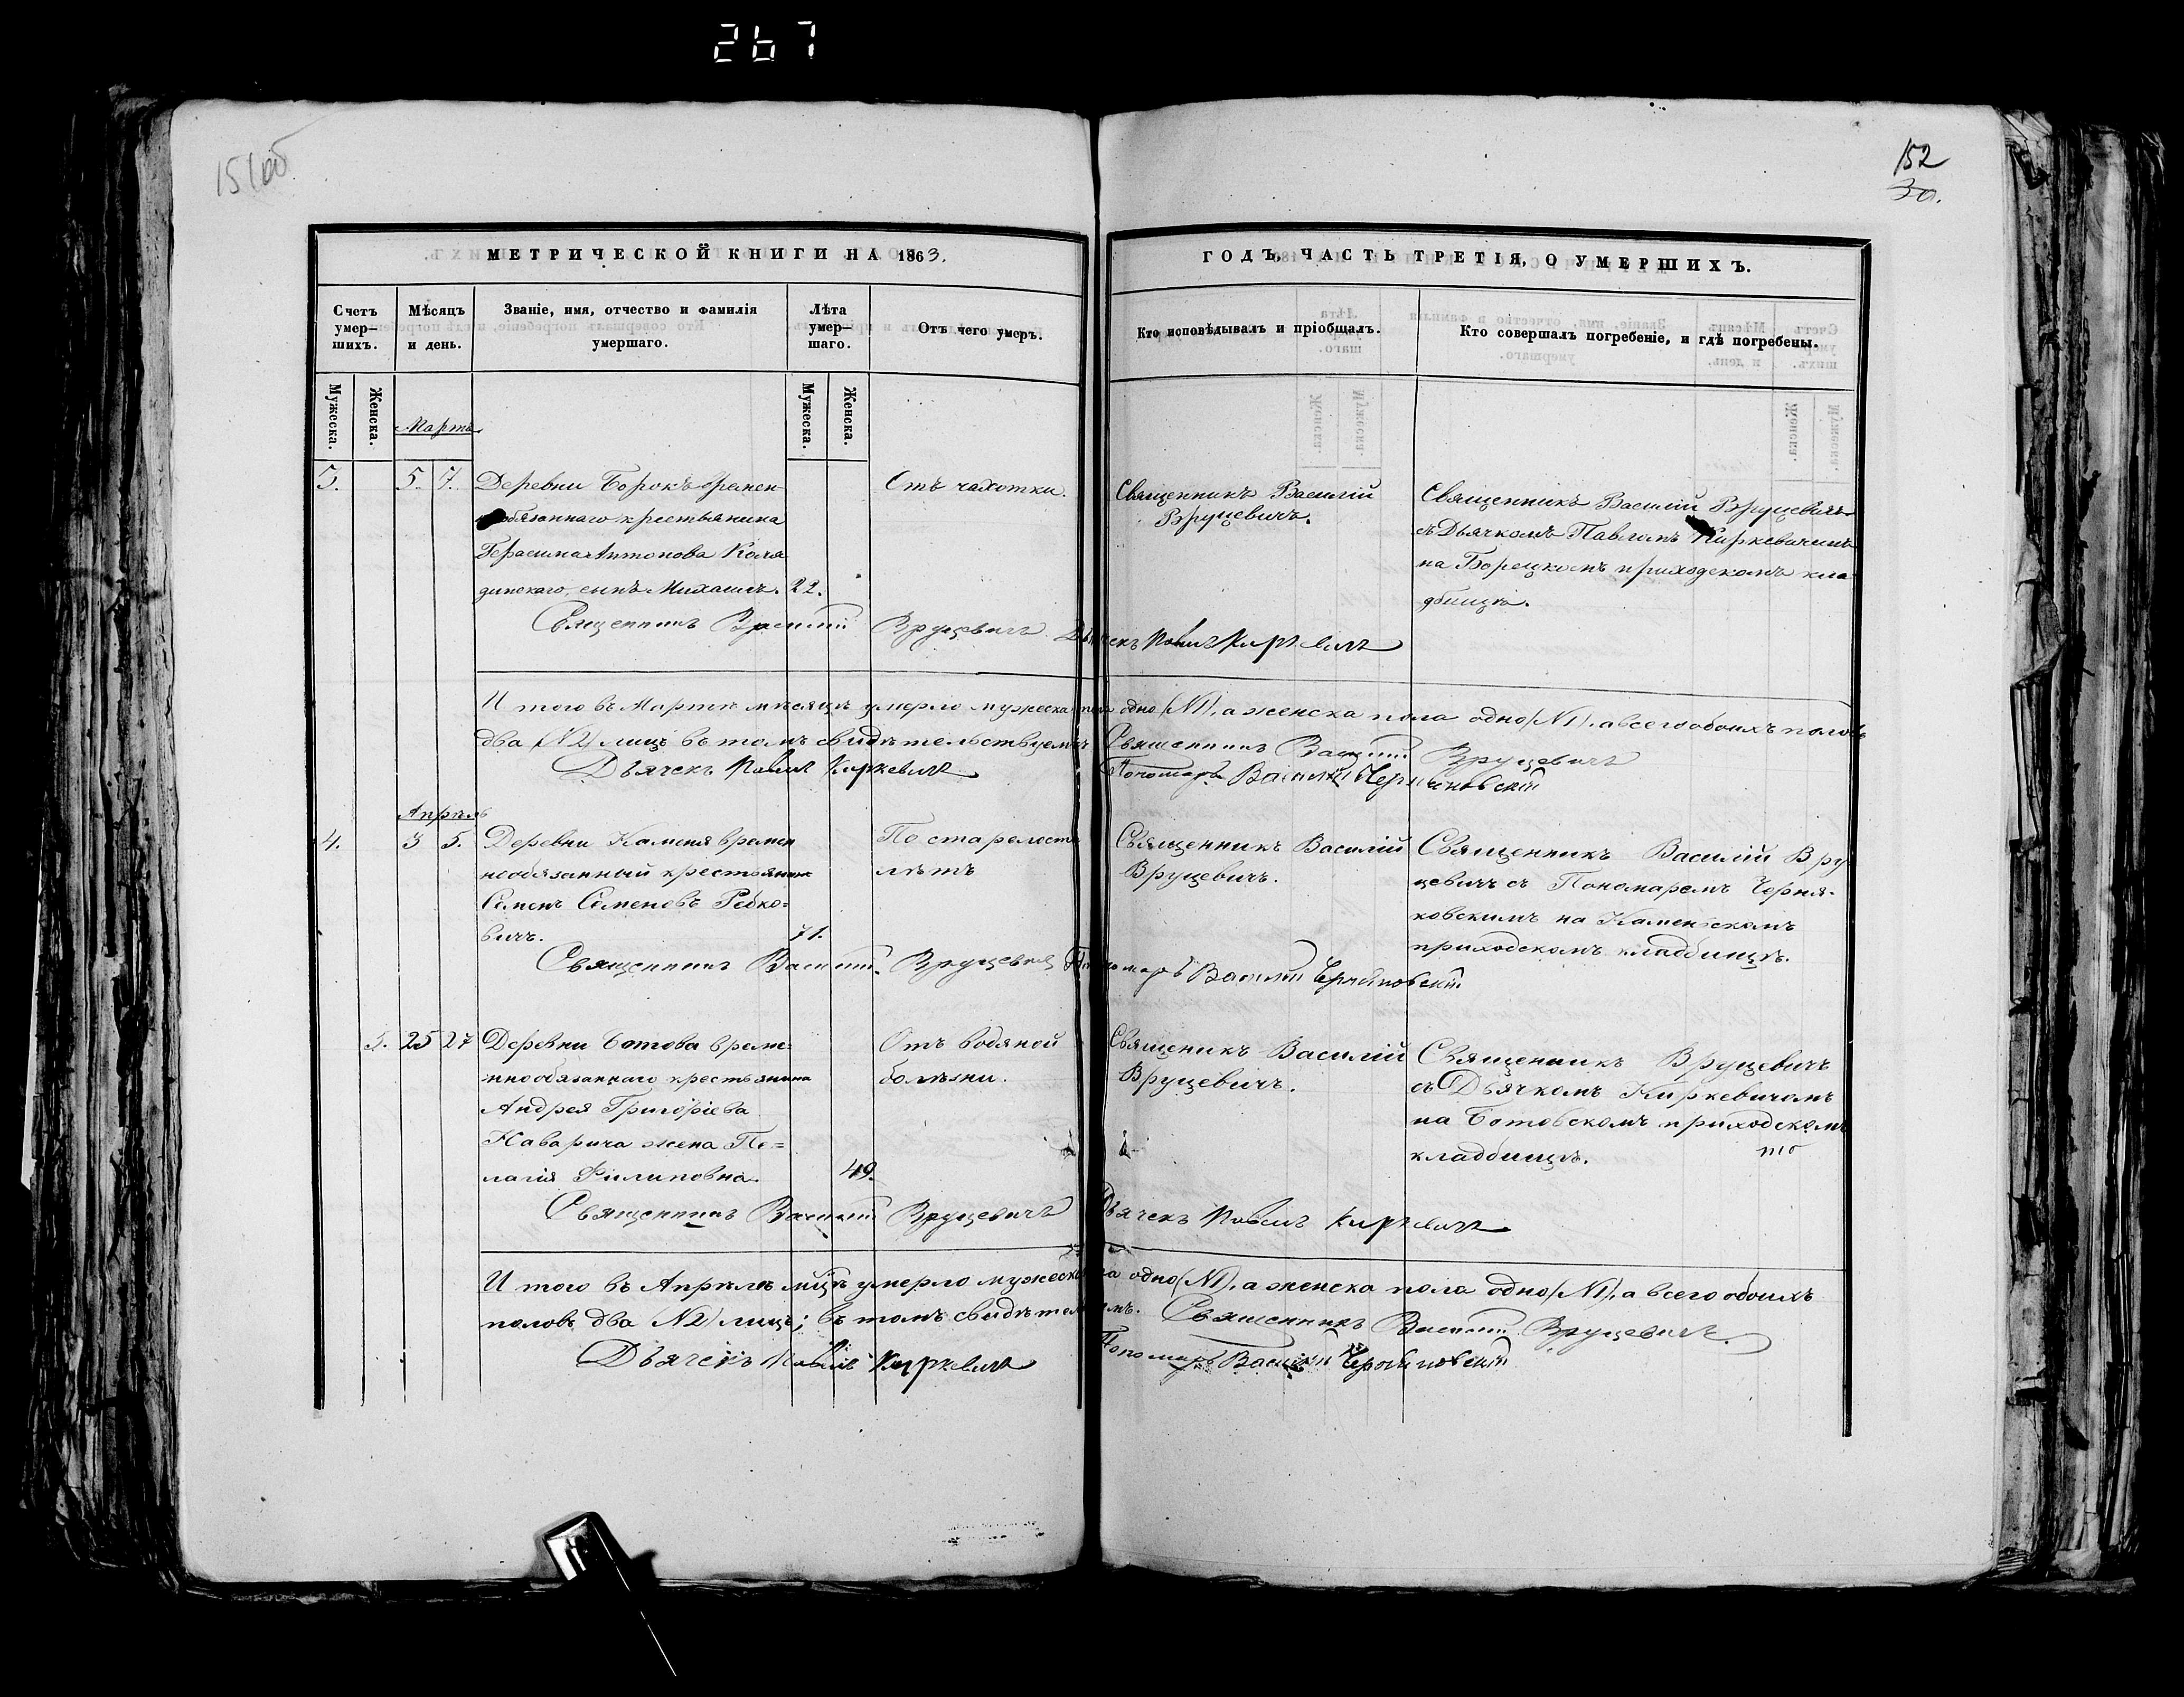 267
151об
152
30.
МЕТРИЧЕСКОЙ КНИГИ НА 1863.
ГОДЪ, ЧАСТЬ ТРЕТІЯ, О УМЕРШИХЪ.
Счетъ умер—шихъ.
Мѣсяцъ и день.
Званіе, имя, отчество и фамилія умершаго.
Лѣта умер—шаго.
Отъ чего умеръ.
Кто исповѣдывалъ и пріобщалъ.
Кто совершалъ погребеніе, и гдѣ погребены.
Мужеска.
Женска.
Мужеска.
Женска.
Мартъ
3. 5. 7.
Деревни Борокъ времен-
обязаннаго крестьянина
Герасима Антонова Коля
динскаго, сынъ Михаилъ. 22.
Отъ чахотки.
Священникъ Василій
Вруцевичъ.
Священникъ Василій Вруцевичъ
съ Дьячкомъ Павломъ Киркевичемъ
на Борецкомъ приходскомъ кла
дбищѣ.
Священникъ Василій Вруцевичъ Дьячекъ Павелъ Киркевичъ
И того въ Мартѣ мѣсяцѣ умерло мужеска пола одно (№1), а женска пола одно (№1), а всего обоихъ половъ
два (№2) лицъ въ томъ свидѣтельствуемъ Священникъ Василій Вруцевичъ
Дьячекъ Павелъ Киркевичъ Пономарь Василій Черняковскій
Апрѣль
4. 3 5.
Деревни Каменя времен
необязанный крестьянинъ
Семенъ Семеновъ Ребко=
вичъ. 71.
По старости
лѣтъ
Священникъ Василій
Вруцевичъ.
Священникъ Василій Вру
цевичъ съ Пономаремъ Черня-
ковскимъ на Каменьскомъ
приходскомъ кладбищѣ.
Священникъ Василій Вруцевичъ Пономарь Василій Черняковскій
3. 25 27
Деревни Ботова време=
ннообязаннаго крестьянина
Андрея Григоріева
Наварича жена Пе=
лагія Филиповна. 49.
Отъ водяной
болѣзни.
Священикъ Василій
Вруцевичъ.
Священникъ Вруцевичъ
съ Дьячкомъ Киркевичомъ
на Ботовскомъ приходскомъ
кладбищѣ.
Священникъ Василій Вруцевичъ Дьячекъ Павелъ Киркевичъ
И того въ Апрѣлѣ мцѣ умерло мужеска пола одно (№1), а женска пола одно (№1), а всего обоихъ
половъ два (№2) лицъ; въ томъ свидѣтельствуемъ. Священникъ Василій Вруцевичъ.
Дьячекъ Павелъ Киркевичъ Пономарь Василій Черняковскій